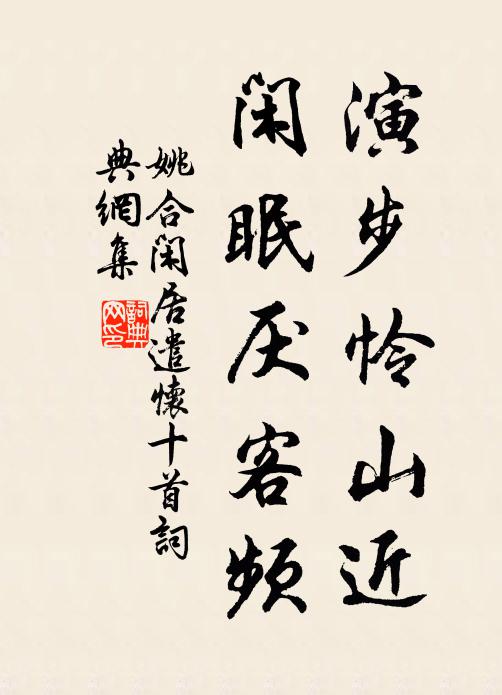 演步怜山近
闲眠厌客频
姚合闲居遣懷十首詞
典網集
詞典网印